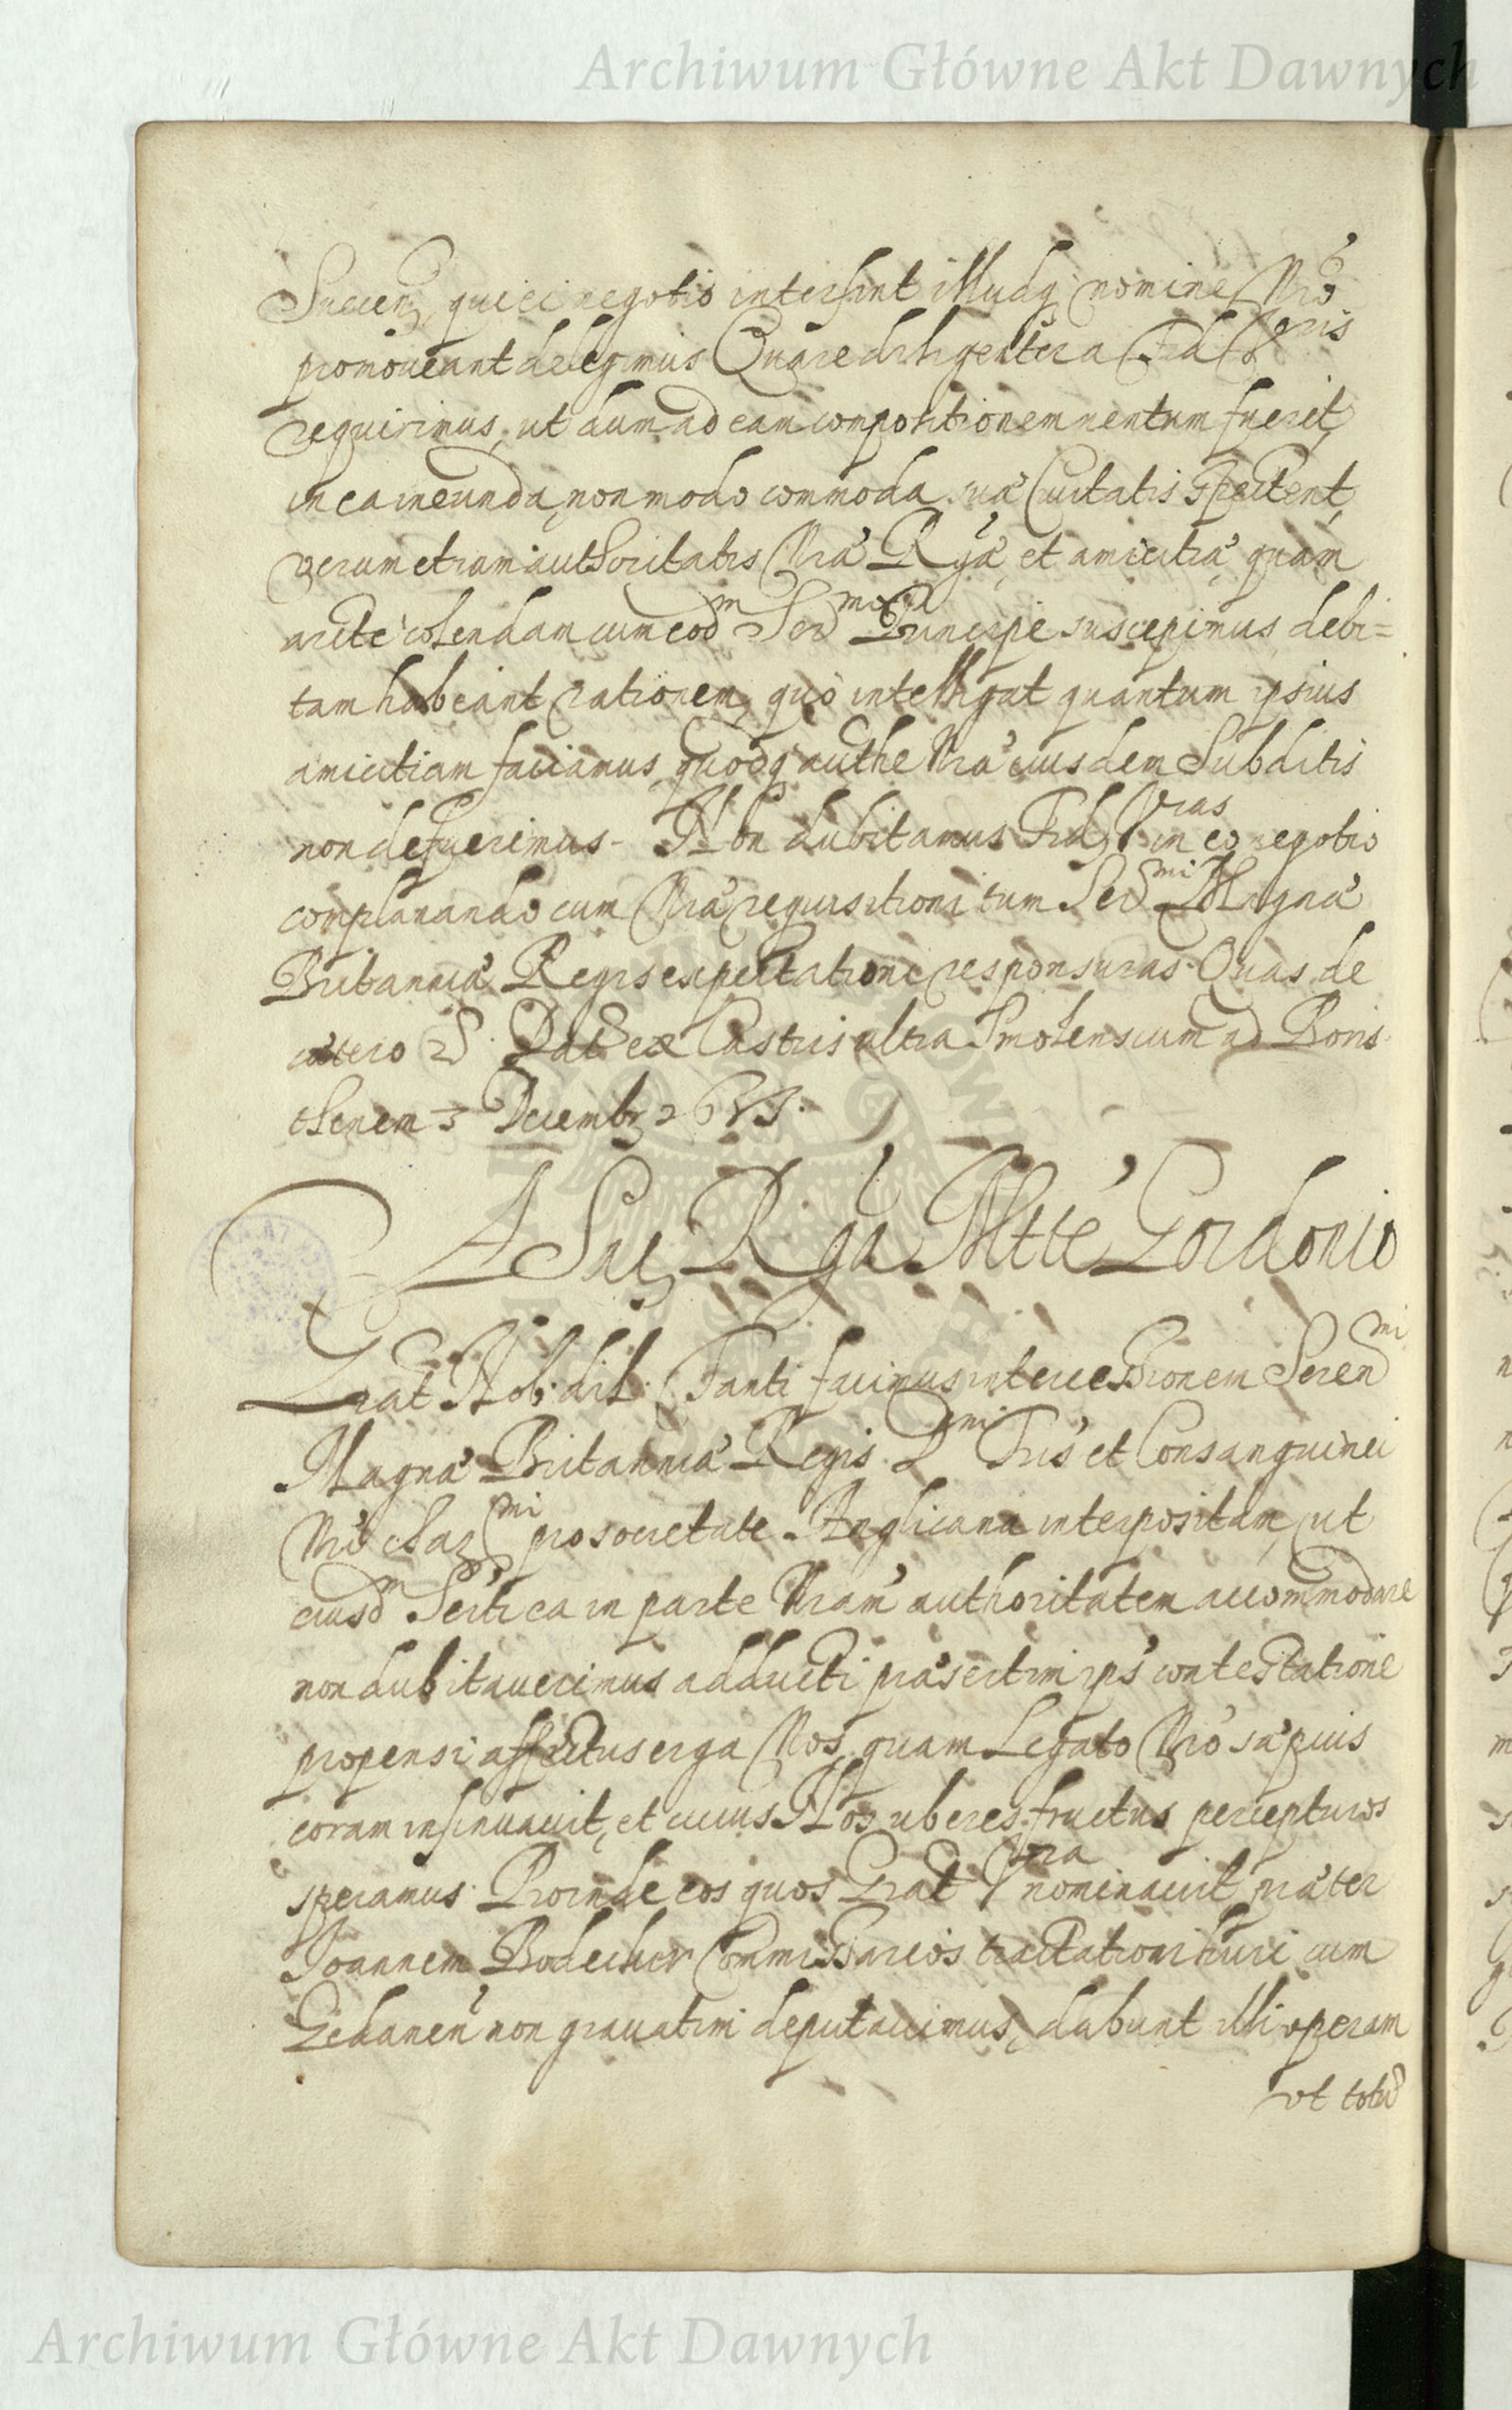 Archiwum Główne Akt Dawnych
Succen, qui ei negotio intersint illudq nomine Nro
promoveant delegimus Quare diligenter a Fid Vris
requirimus, ut dum ad eam compositionem ventum fuerit,
in ea ineunda, non modo commoda suae Civitatis spectent,
verum etiam authoritatis Nrae Rgae, et amicitiae, quam
arcte colendam cum eodm Sermo Principe suscepimus, debi=
tam habeant rationem, quo intelligat quantum ipsius
amicitiam faciamus, quodq authte Nra eiusdem Subditis
non defuerimus - Non dubitamus Fid Vras in eo negotio
complanando cum Nrae requisitioni tum Sermi Magnae
Britanniae Regis expectationi responsuras. Quas de
caetero Dat ex Castris ultra Smolenscum ad Boris
thenem 3 Decembr
A Sac Rga Mtte Gordonio
Grat Nob: dil: Tanti facimus intercessionem Serenmi
Magnae Britanniae Regis Dmi Fris et Consanguinei
Nri charmi pro societate Anglicana interpositam, ut
eiusdm Serti ea in parte Nram authoritatem accommodare
non dubitauerimus adducti praesertim ips contestatione
propensi affectus erga Nos, quam Legato Nro saepius
coram insinuauit, et cuius Nos uberes fructus percepturos
speramus. Proinde eos quos Grat Vra nominauit, praeter
Joannem Bodecker Commissarios tractationi huic cum
Gedanen non gravatim deputauimus, dabunt illi operam
ut
Archiwum Główne Akt Dawnych